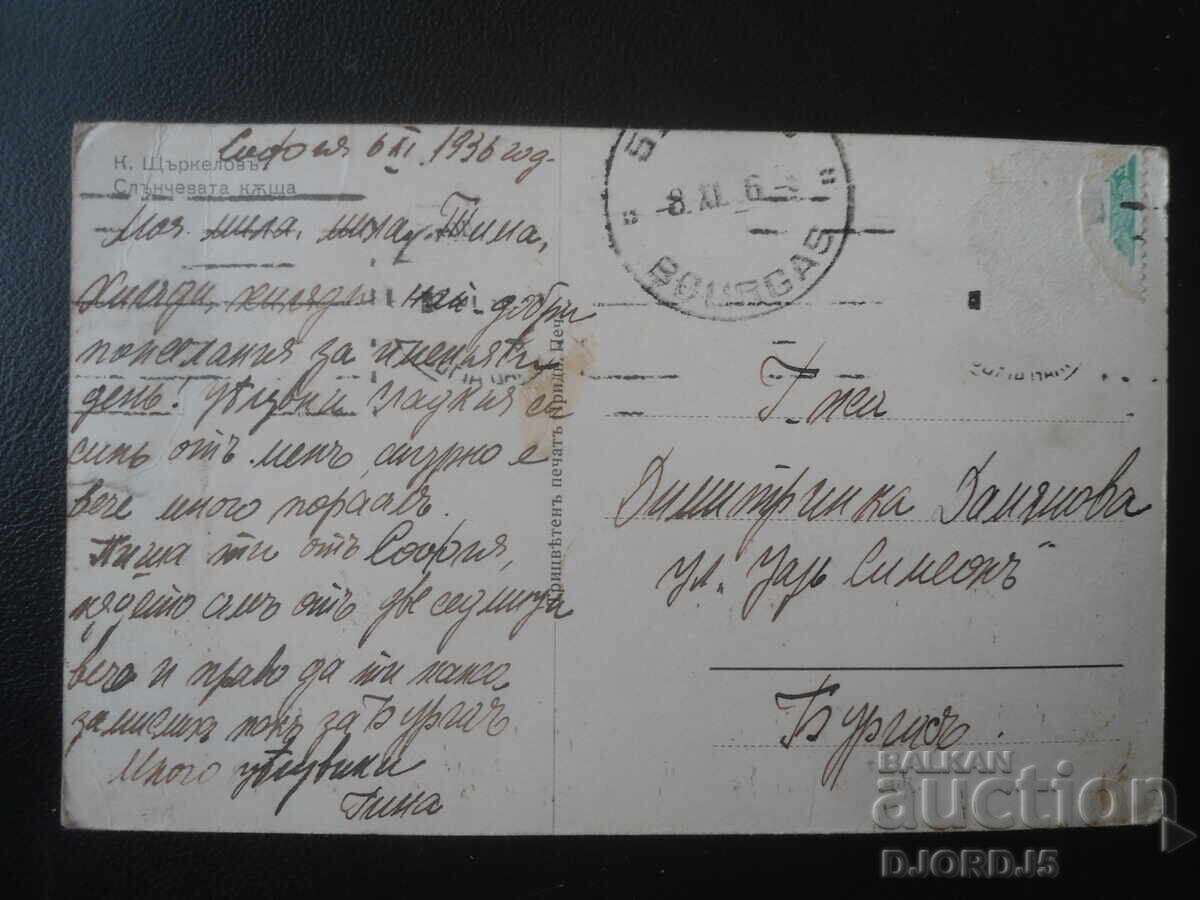 К. Щъркеловъ
Слънчевата кѫща
София 6 XI 1936 год.
Моя мила, мила Тина,
Хиляди, хиляди най добри
пожелания за именния
день! Цѣлувки гладкия
синъ отъ менъ сигурно е
вече много порасълъ.
Пиша ти отъ София,
кѫдето съмъ отъ две седмици
вече и право да ти кажа
замислихъ пакъ за Бургасъ.
Много цѣлувки
Тина
Трицвѣтенъ печатъ Придв. Печ.
8. XI. 6
BOURGAS
Г-жа
Димитринка Дамянова
ул. "Царь Симеонъ"
Бургасъ.
BALKAN
auction
DJORDJ5